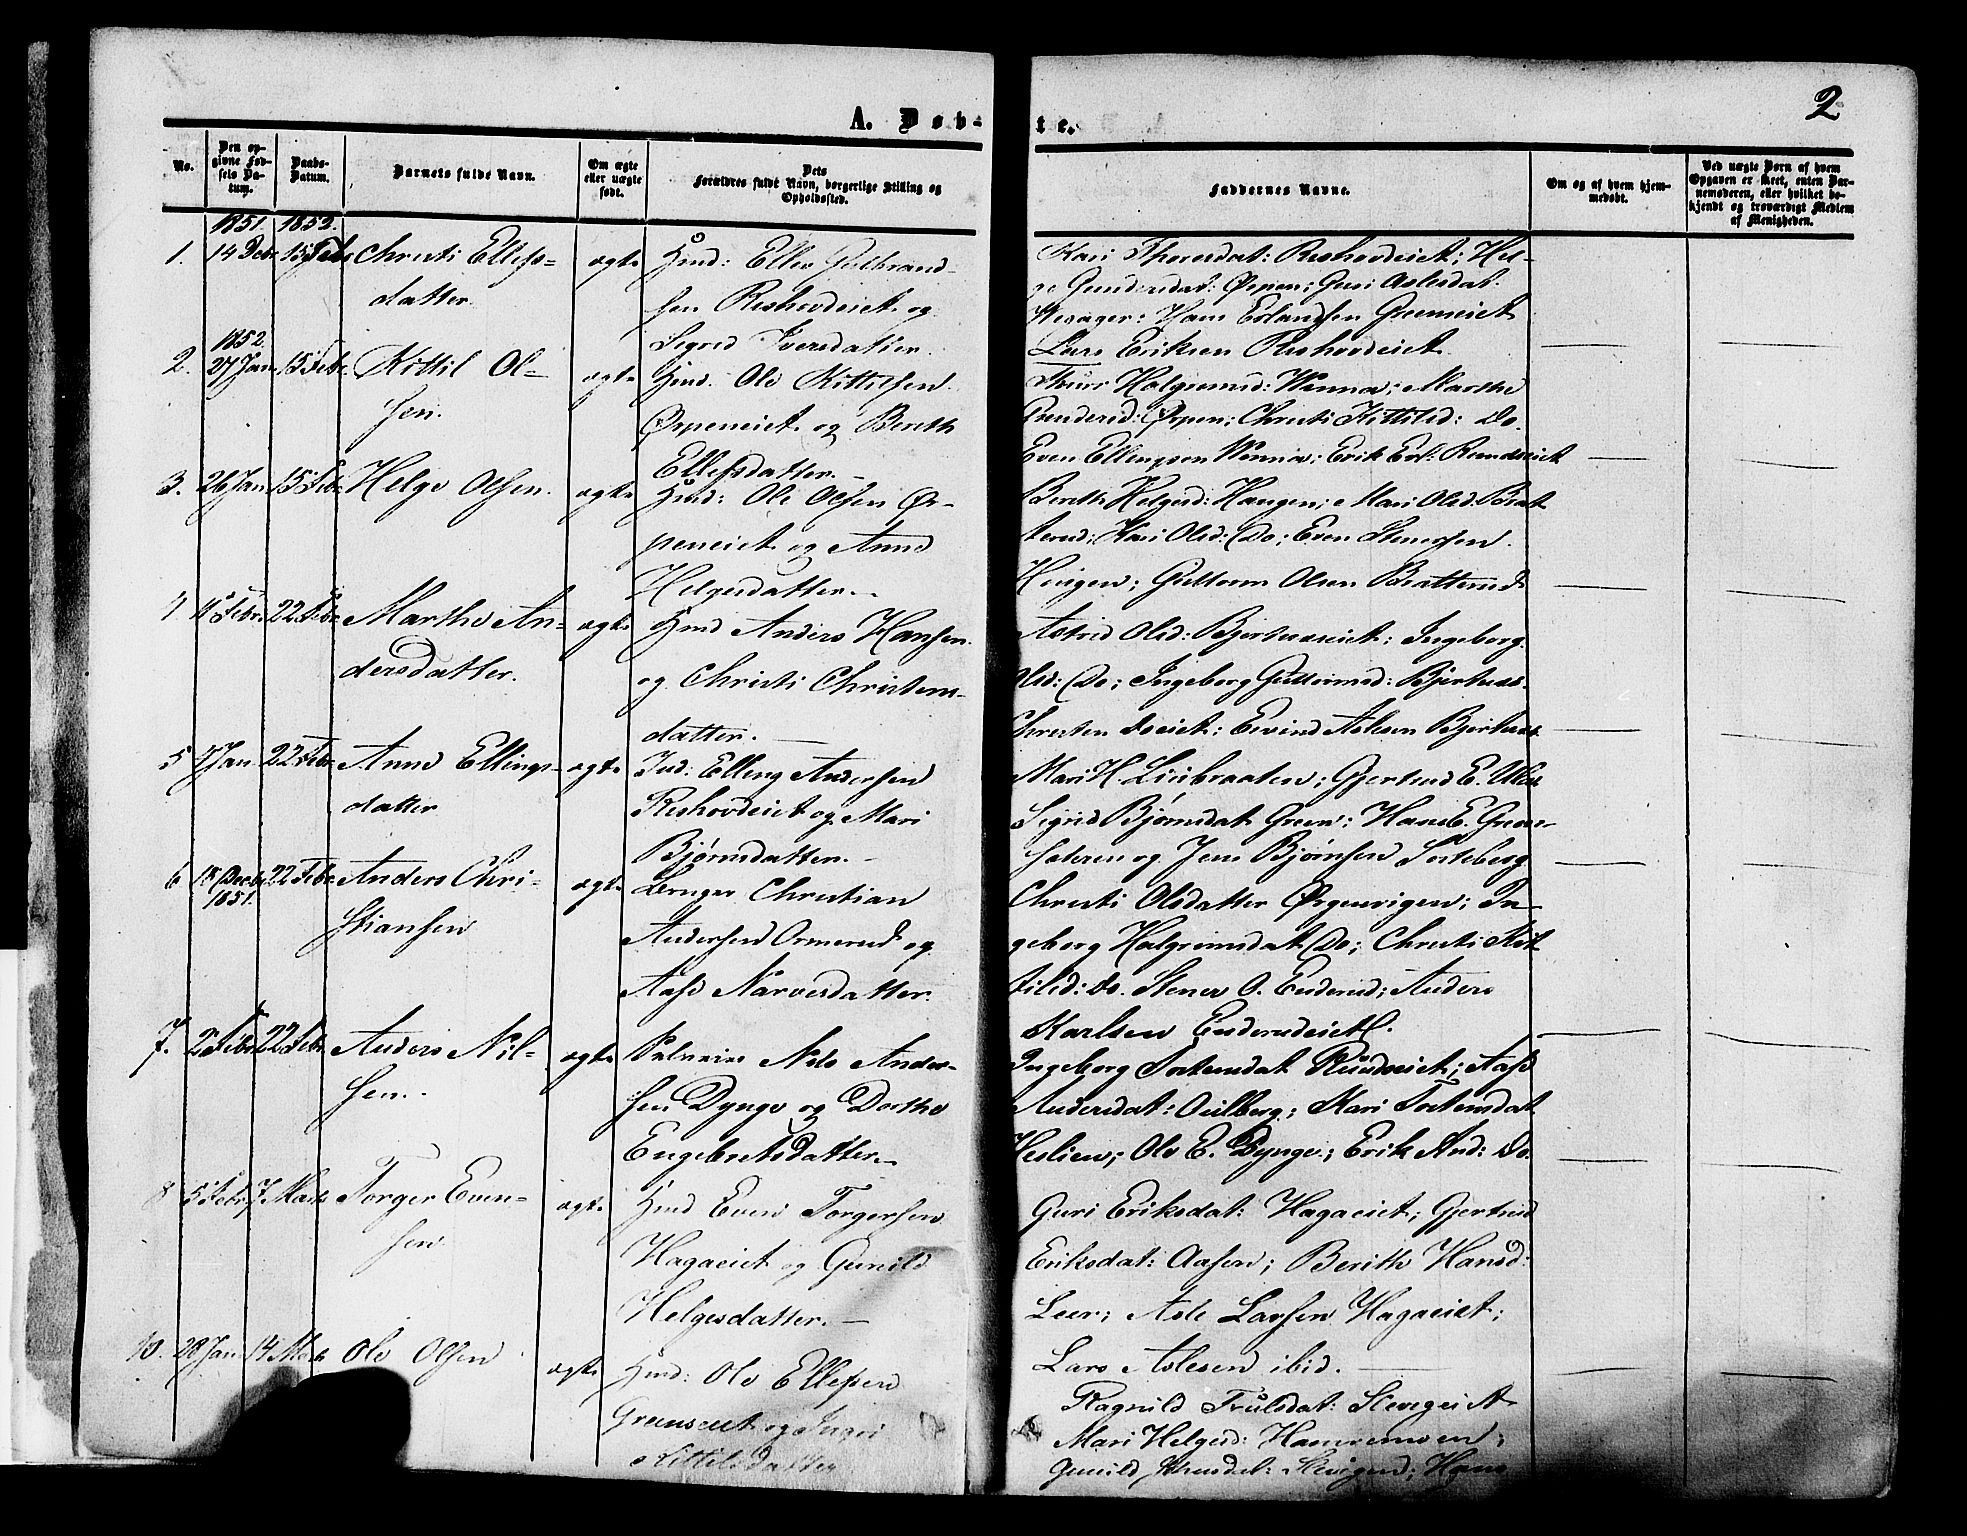 2
A. Døbte.
No.
Den opgivne Fødsels Datum.
Daabs-Datum.
Barnets fulde Navn.
Om ægte eller uægte født.
Dets Forældres fulde Navn, borgerlige Stilling og Opholdssted.
Faddernes Navne.
Om og af hvem hjemmedøbt.
Ved uægte Børn af hvem Opgaven er skeet, enten Barnemoderen, eller hvilket bekjendt og troværdigt Medlem af Menigheden.
1851. 1852.
1. 14 Debr 15 Febr Christi Ellefs-
datter.
ægte
Hmd: Ellev Gulbrand-
sen Reshovdeiet og
Sigrid Iversdatter.
Kari Thoresdat: Reshovdeiet; Hel-
ge Gundersdat: Ørpen; Guri Aslesdat:
Hans Erlandsen Greeneiet
Lars Eriksen Reshovdeiet.
1852.
2. 27 Jan 15 Febr. Kittil Ol-
sen.
ægte
Hmd. Ole Kittilsen
Ørpeneiet og Berith
Ellefsdatter.
Thuri Halgrimsd: Wenna; Marthe
Gundersd: Ørpen; Christi Kittilsd: Do.
Even Ellingsen Wenna; Erik Erl: Rundseiet
3. 26 Jan 15 Febr Helge Olsen.
ægte
Hmd: Ole Olsen Ør-
peneiet og Anne
Helgesdatter.
Berith Helgesd: Haugen; Mari Olsd: Brat-
terud; Kari Olsd: Do; Even Stenersen
Guttorm Olsen Bratterud
4 11 Febr. 22 Febr. Marthe An-
dersdatter.
ægte
Hmd Anders Hansen
og Christi Christens-
datter.
Astrid Olsd: Ingeborg
Olsd: Do; Ingeborg Guttormsd:
Christen Eivind Aslesen
5 4 Jan. 22 Febr. Anne Ellings-
datter
ægte
Ind: Elling Andersen
Reshovdeiet og Mari
Bjørnsdatter.
Mari H. Liribraaten; Gjertrud E.
Sigrid Bjørnsdat Green; Hans E. Green-
og Jens Bjørnsen Sorteberg
6 18 Decbr 1851. 22 Febr. Anders Chri-
stiansen
ægte
Christian
Andersen Ormerud og
Aase Narvesdatter.
Christi Olsdatter Ørgenvigen; In-
geborg Halgrimsdat Do; Christi Kit-
tilsd: Do. Stener O. Enderud; Anders
Karlsen Enderudeiet.
7. 2 Febr 22 Febr. Anders Nil-
sen.
ægte
Nels Ander-
sen Dynge og Dorthe
Engebretsdatter.
Ingeborg Torstensdat Rundseiet; Aase
Andersdat: Kari Torstensdat
Ole E. Dynge; Erik And: Do.
8 5 Febr. 7 Marts Torger Even-
sen
ægte
Hmd Even Torgersen
Hagaeiet og Gunild
Helgesdatter.
Guri Eriksdat: Hagaeiet; Gjertrud
Eriksdat: Aasen; Berith Hansd:
Leer; Asle Larsen Hagaeiet;
Lars Aslesen ibid.
10. 28 Jan 14 Marts Ole Olsen
ægte
Hmd: Ole Ellefsen
Greenseiet og Ingri
Kittilsdatter
Ragnild Trulsdat:
Mari Helgesd: Hamremoen;
Gunild Hans